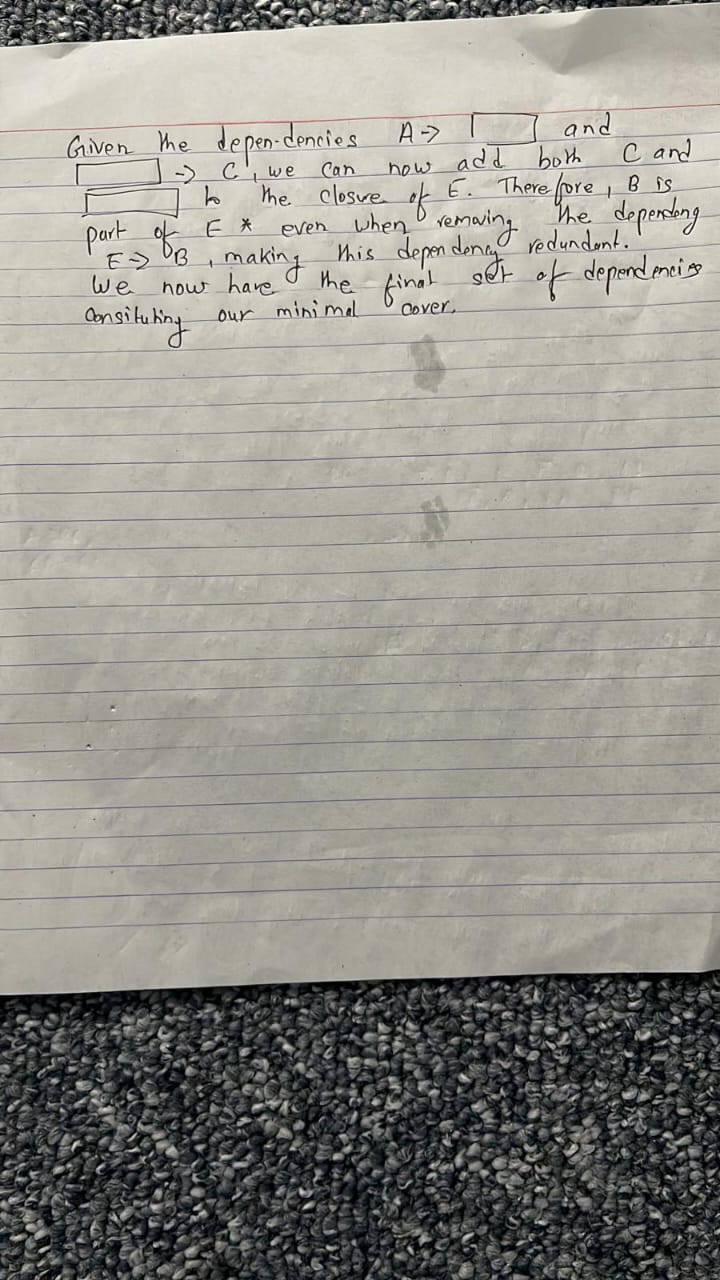 Given the depen-dencies A-> and
-> C, we can now add both C and
to the closure of E. Therefore, B is
part of E * even when removing the dependency
E-> B, making this dependency redundant.
We now have the final set of dependencies
consituting our minimal cover.